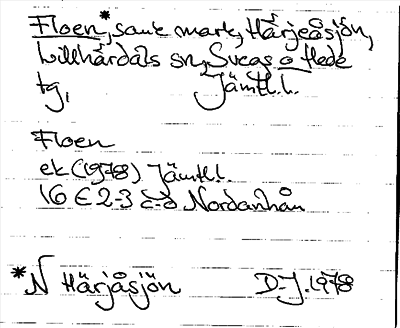 Floen,* sank mark, Härjeåsjön,
Lillhärdals sn, Svegs o Hede
tg, Jämtl.l.
Floen
ek (1978) Jämtl.l.
16 E 2-3 c-d Nordanhån
*N Härjåsjön D-J. 1978